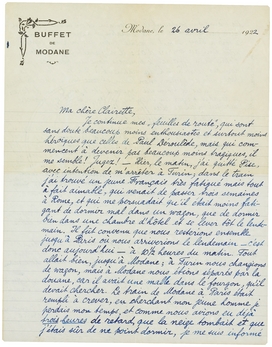 BUFFET
DE
MODANE
Modane, le 26 avril 1922
Ma chère Clairette,
Je continue mes "feuilles de route", qui sont
sans doute beaucoup moins enthousiastes et surtout moins
héroïques que celles de Paul Deroulède, mais qui com-
mencent à devenir pas beaucoup moins tragiques, il
me semble! Jugez! - Hier, le matin, j'ai quitté Pise,
avec intention de m'arrêter à Turin; dans le train
j'ai trouvé un jeune Français très fatigué mais tout
à fait aimable, qui venait de passer trois semaines
à Rome, et qui me persuadait que il était moins fati-
gant de dormir mal dans un wagon, que de dormir
bien dans une chambre d'hôtel et se lever tôt le lende-
main. Il fut convenu que nous resterions ensemble
jusqu'à Paris où nous arriverions le lendemain - c'est
donc aujourd'hui - à heures du matin. Tout
allait bien, jusqu'à Modane; à Turin nous changions
de wagon, mais à Modane nous étions séparés par la
douane, car il avait une malle dans le fourgon, qu'il
devait chercher. Le train de Modane à Paris était
rempli à crever, en cherchant mon jeune homme je
perdais mon temps, et comme nous avions eu déjà
trois heures de retard, que la neige tombait et que
j'étais sûr de ne point dormir, je me suis informé